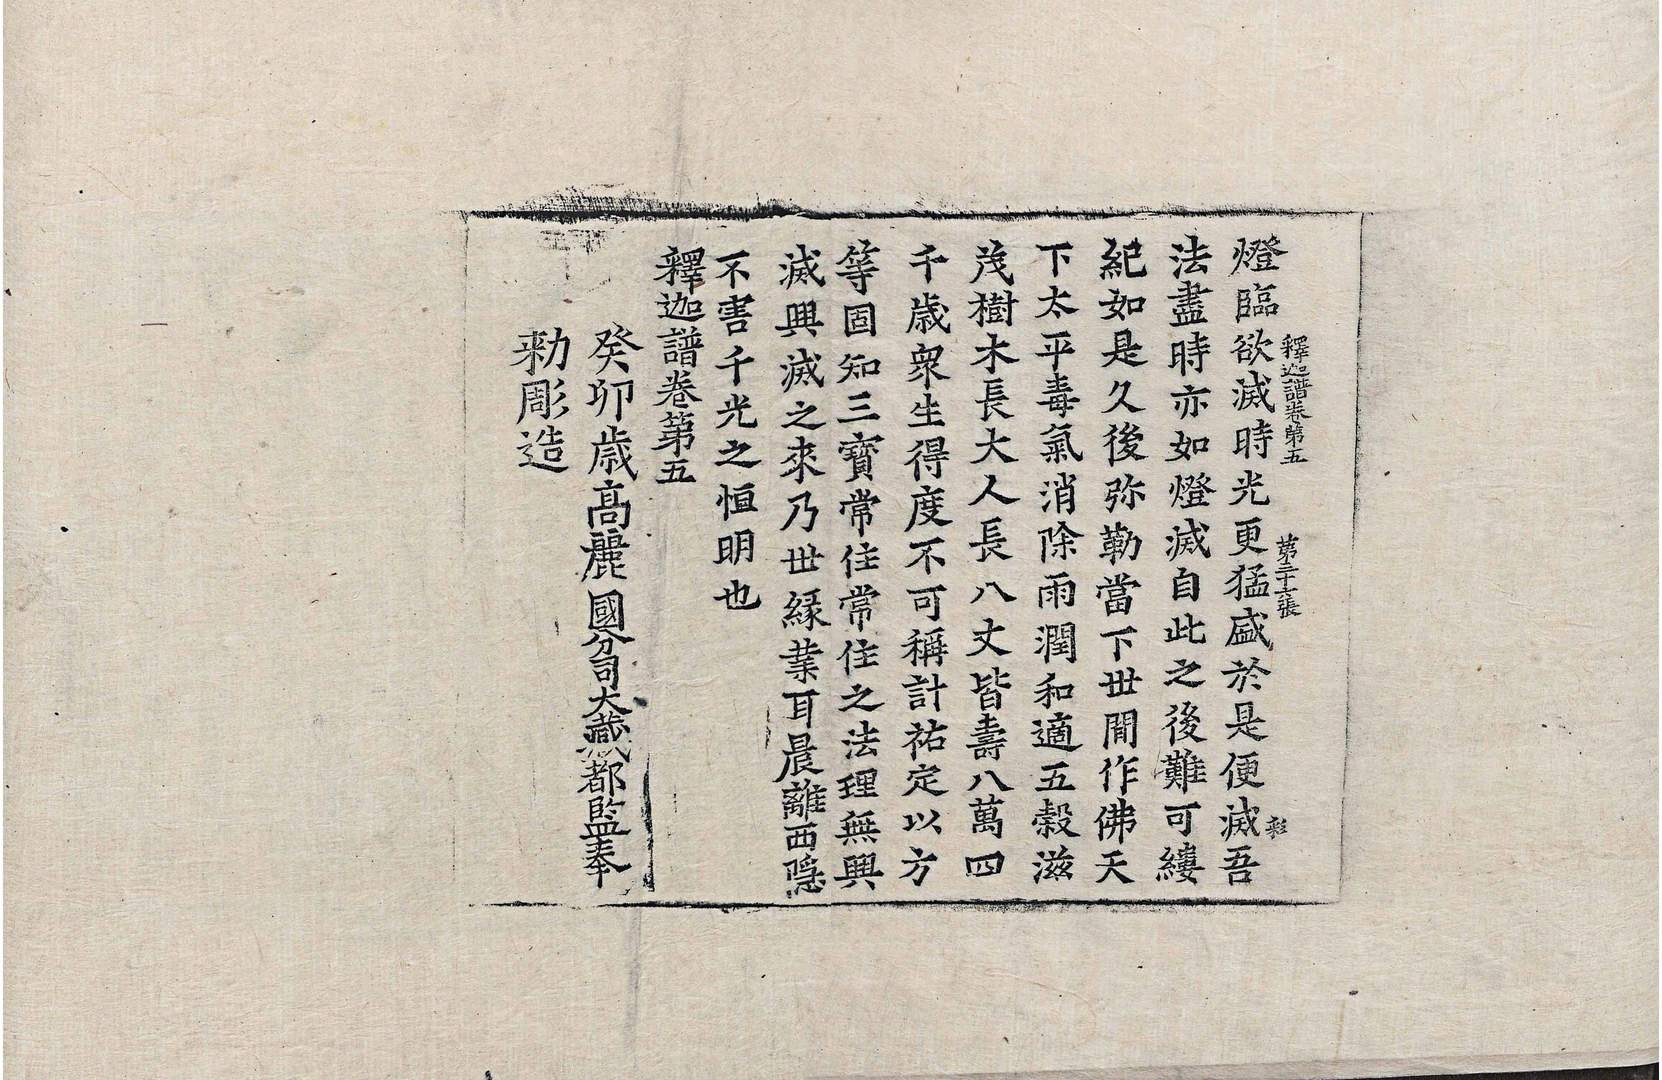 釋迦譜卷第五 第三十六張 彩
燈臨欲滅時光更猛盛於是便滅吾
法盡時亦如燈滅自此之後難可縷
紀如是久後弥勒當下世間作佛天
下太平毒氣消除雨潤和適五穀滋
茂樹木長大人長八丈皆壽八萬四
千歲衆生得度不可稱計祐定以方
等固知三寶常住常住之法理無興
滅興滅之來乃世緣業耳晨離西隠
不害千光之恒明也
釋迦譜卷第五
癸卯歲高麗國分司大藏都監奉
勑彫造